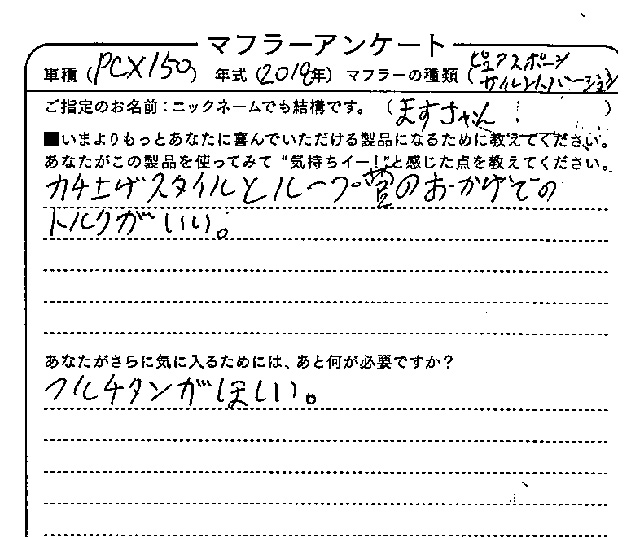 マフラーアンケート
車種 (PCX150) 年式 (2018年) マフラーの種類 (ピュアスポーツ サイレントバージョン)
ご指定のお名前:ニックネームでも結構です。 (ますちゃん! )
■いまよりもっとあなたに喜んでいただける製品になるために教えてください。
あなたがこの製品を使ってみて "気持ちイー!"と感じた点を教えてください。
カチ上げスタイルとループ管のおかげでの
トルクがいい。
あなたがさらに気に入るためには、あと何が必要ですか?
フルチタンがほしい。